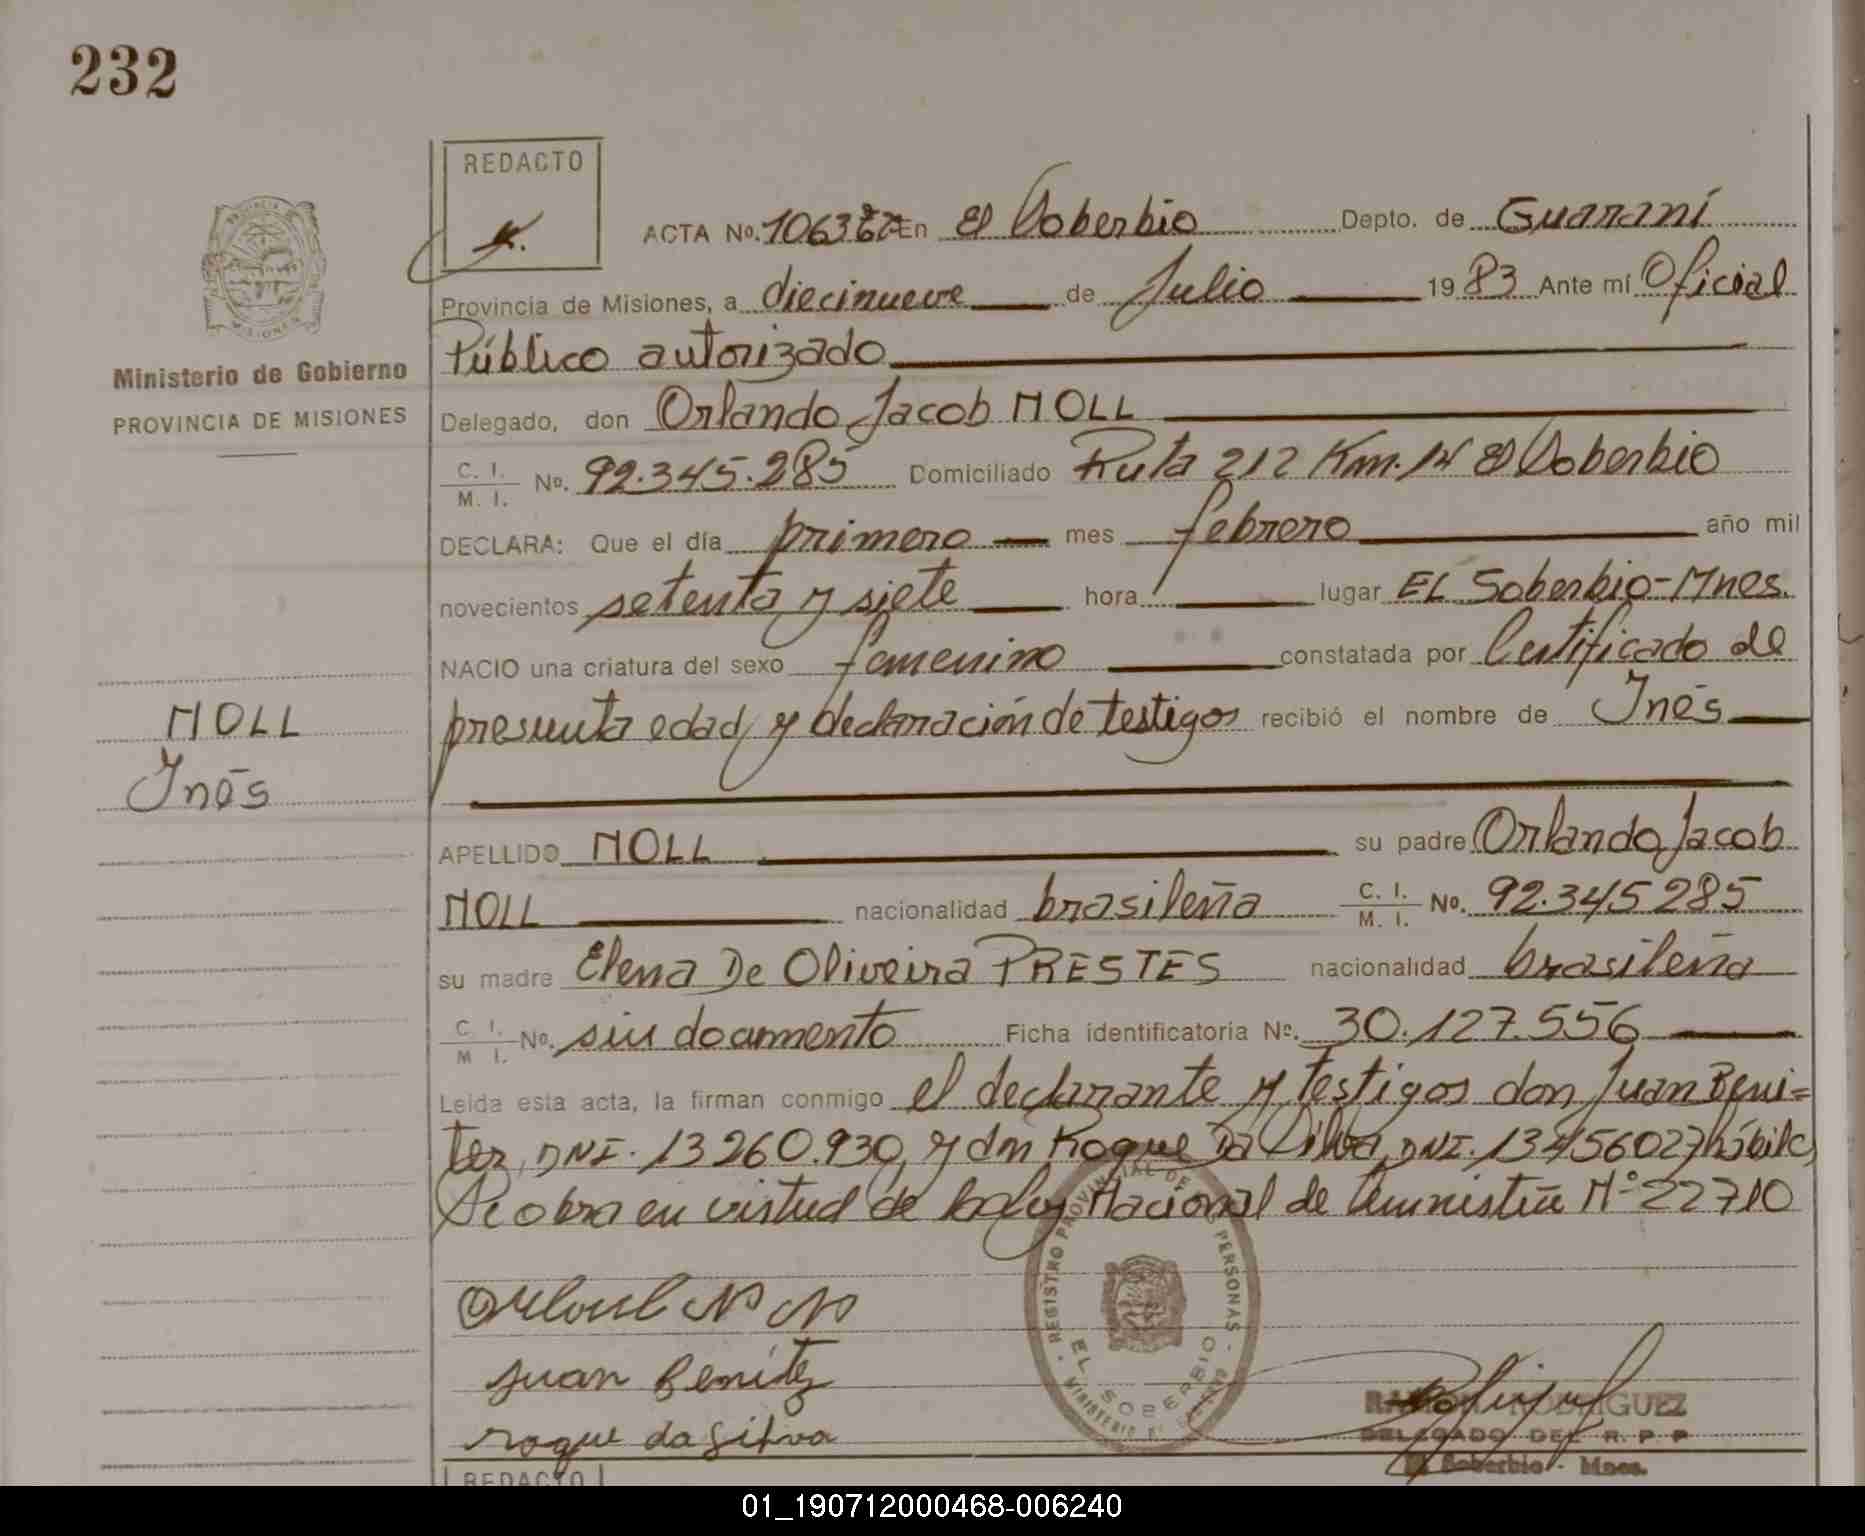 232
REDACTO
ACTA No. 1063 En El Soberbio Depto. de Guaraní
Provincia de Misiones, a diecinueve de Julio 1983 Ante mí Oficial
Público autorizado
Ministerio de Gobierno
PROVINCIA DE MISIONES
Delegado, don Orlando Jacob NOLL
C. I. M. I. No. 92.345.285 Domiciliado Ruta 212 Km. 14 El Soberbio
DECLARA: Que el día primero mes febrero año mil
novecientos setenta y siete hora lugar EL Soberbio-Mnes.
NACIO una criatura del sexo femenino constatada por Certificado de
presunta edad y declaración de testigos recibió el nombre de Inés
NOLL
Inés
APELLIDO NOLL su padre Orlando Jacob
NOLL nacionalidad brasileña C. I. M. I. No. 92.345285
su madre Elena De Oliveira PRESTES nacionalidad brasileña
C. I. M. I. No. sin documento Ficha identificatoria No. 30.127.556
Leida esta acta, la firman conmigo el declarante y testigos don Juan Beni=
tez, DNI. 13260.930, y don Roque Da Silva, DNI. 13456027 hábiles
Se obra en virtud de la ley Nacional de Amnistía N° 22710
REGISTRO PROVINCIAL DE LAS PERSONAS
EL SOBERBIO
Juan Benítez
roque da silva
RAMON RODRIGUEZ
DELEGADO DEL R. P. P
El Soberbio - Mnes.
REDACTO
01_190712000468-006240